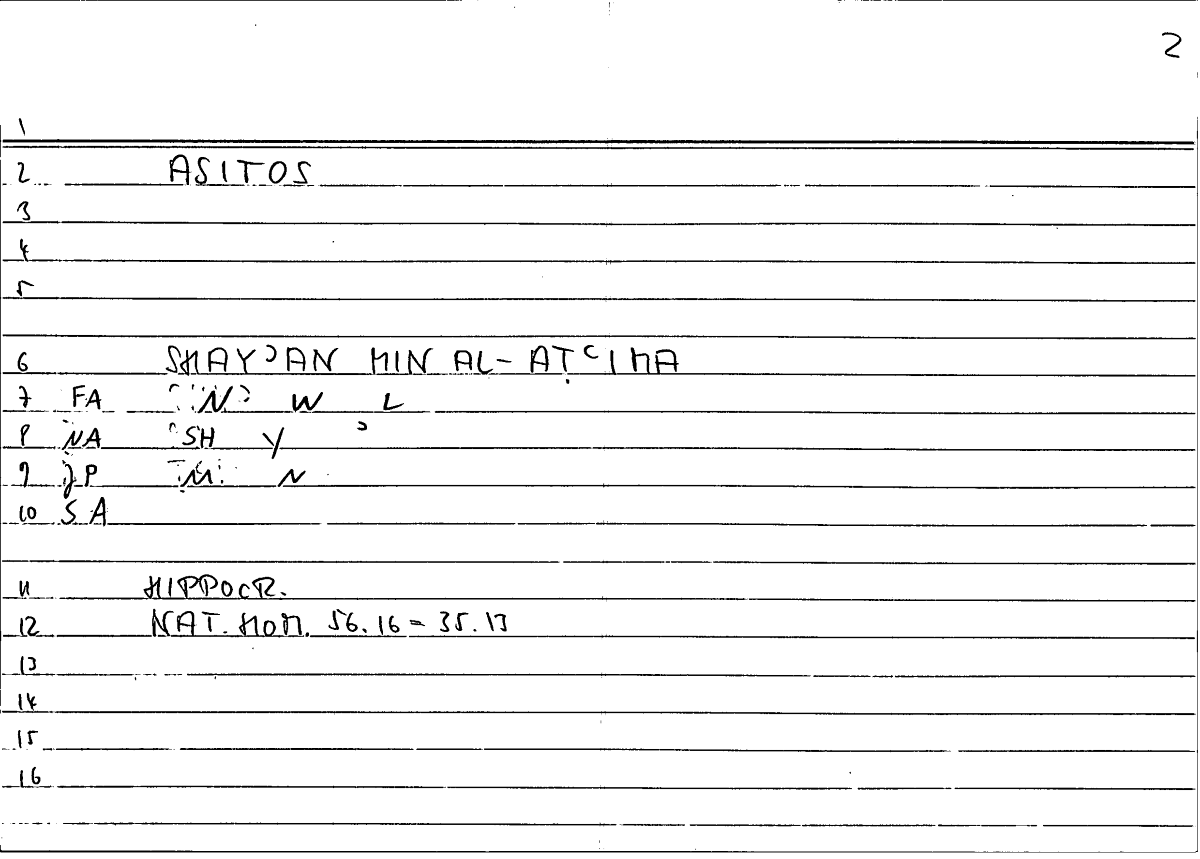 2
1
2 ASITOS
3
4
5
6 SHAYʾAN MIN AL-AṬʿIMA
7 FA N W L
8 NA SH Y ʾ
9 P M N
10 SA
11 HIPPOCR.
12 NAT. HOM. 56.16 = 35.13
13
14
15
16